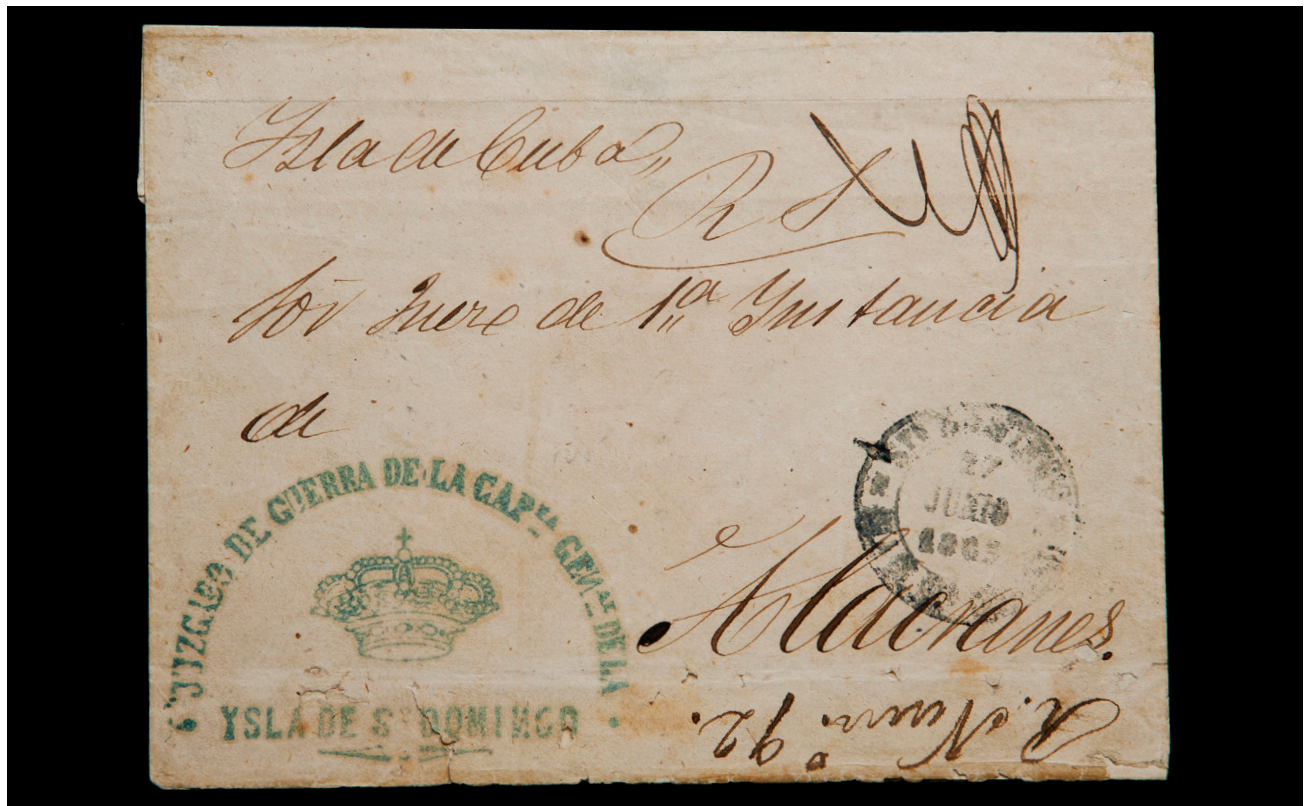 Ysla de Cuba,,
R S
Sor Juez de 1,,a Ynstancia
de
Alacranes.
JUZGADO DE GUERRA DE LA CAPNIA. GENL. DE LA
YSLA DE STO DOMINGO
STO DOMINGO
27
JUNIO
R. Num.o 92.